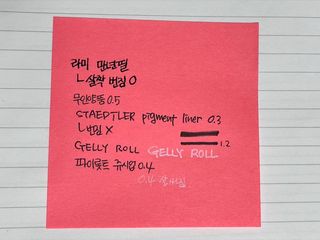 라미 만년필
ㄴ 살짝 번짐 O
무인양품 0.5
STAEDTLER pigment liner 0.3
ㄴ 번짐 X
1.2
GELLY ROLL GELLY ROLL
파이롯트 쥬시업 0.4
0.4 살 번짐